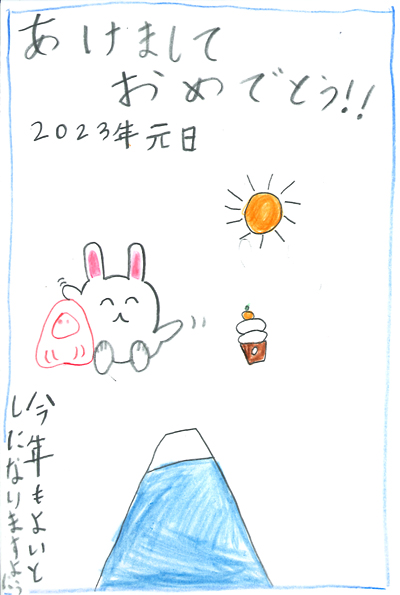 あけまして
おめでとう!!
2023年元日
今年もよいと
しになりますように